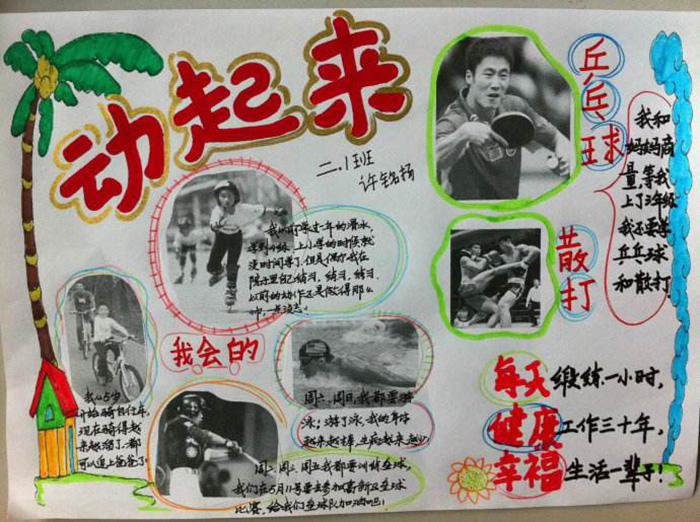 动起来
二.1班
许铭扬
我以前学过一年的滑冰,
学到4级.上小学的时候就
没时间学了.但是偶尔我在
院子里练习、练习、练习.
以前的动作还是做得那么
帅,一点没忘。
我会的
我从5岁
开始骑自行车,
现在骑得越
来越溜了.都
可以追上爸爸了。
周六、周日,我都要游
泳;游了泳,我的身体
越来越棒,生病越来越少.
周二、周五我都要训练垒球,
我们在5月11号要去参加高新区垒球
比赛,给我们垒球队加油吧!
乒乓球
散打
我和
妈妈商
量,等我
上了3年级
我还要学
乒乓球
和散打.
每天锻练一小时,
健康工作三十年,
幸福生活一辈子!